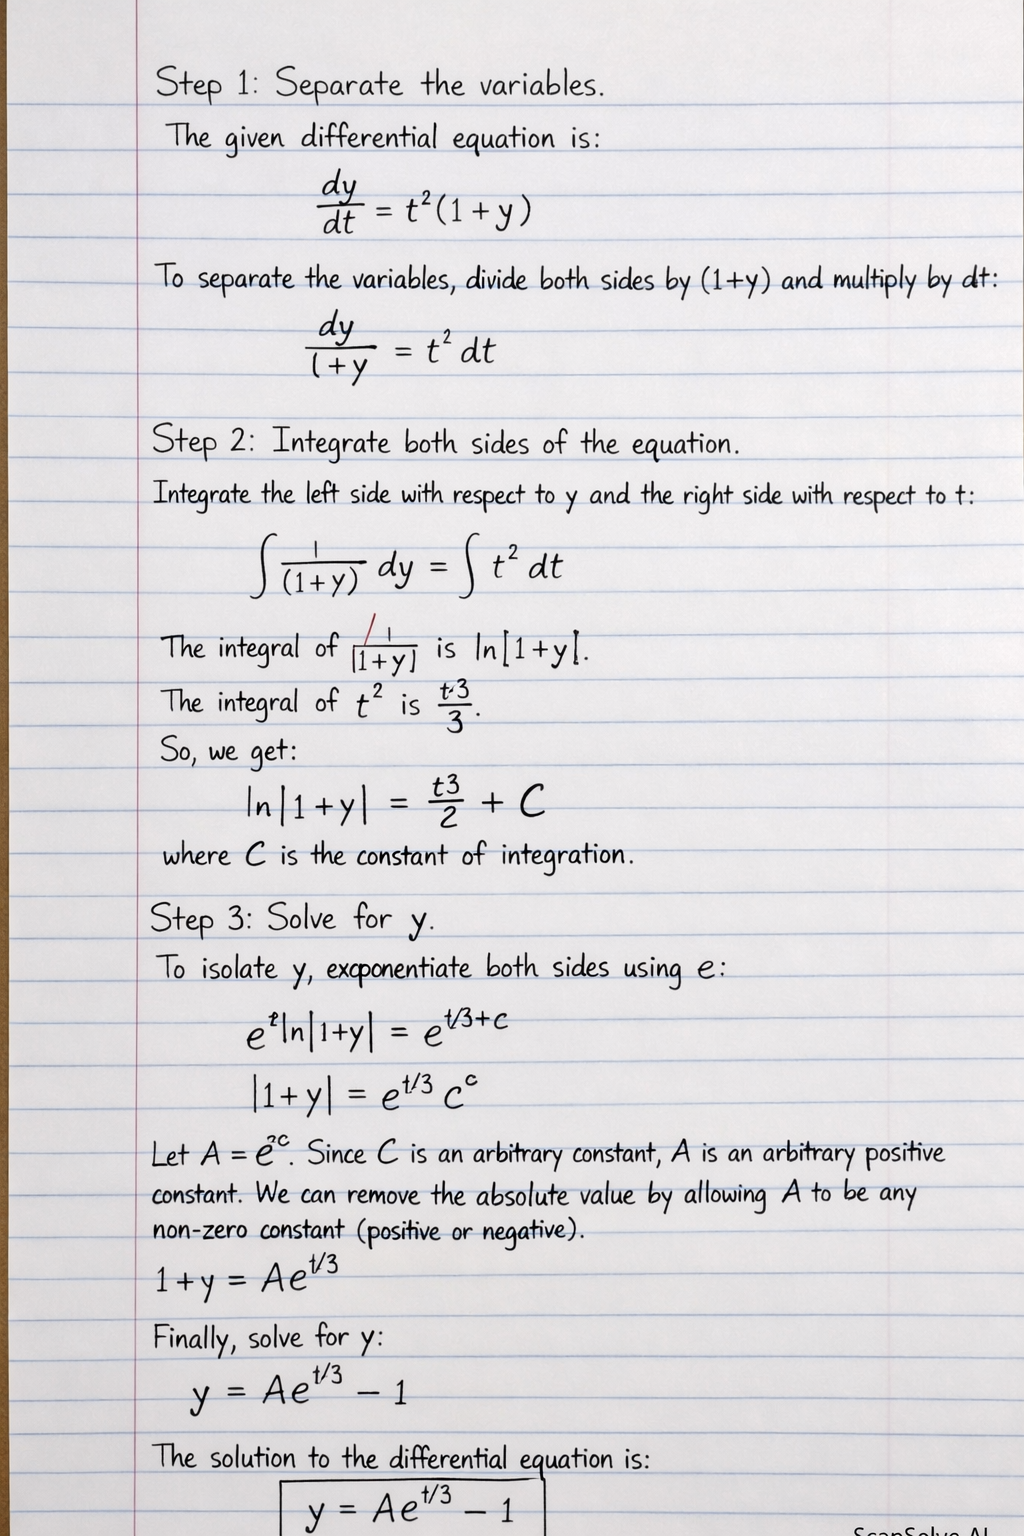 Step 1: Separate the variables.
The given differential equation is:
dy/dt = t²(1+y)
To separate the variables, divide both sides by (1+y) and multiply by dt:
dy/(1+y = t² dt
Step 2: Integrate both sides of the equation.
Integrate the left side with respect to y and the right side with respect to t:
∫ 1/(1+y) dy = ∫ t² dt
The integral of 1/[1+y] is ln[1+y].
The integral of t² is t3/3.
So, we get:
ln|1+y| = t3/2 + C
where C is the constant of integration.
Step 3: Solve for y.
To isolate y, excponentiate both sides using e:
e^t ln|1+y| = e^(t/3+c)
|1+y| = e^(t/3) c^c
Let A = e^2c. Since C is an arbitrary constant, A is an arbitrary positive
constant. We can remove the absolute value by allowing A to be any
non-zero constant (positive or negative).
1+y = Ae^(t/3)
Finally, solve for y:
y = Ae^(t/3) – 1
The solution to the differential equation is:
y = Ae^(t/3) – 1